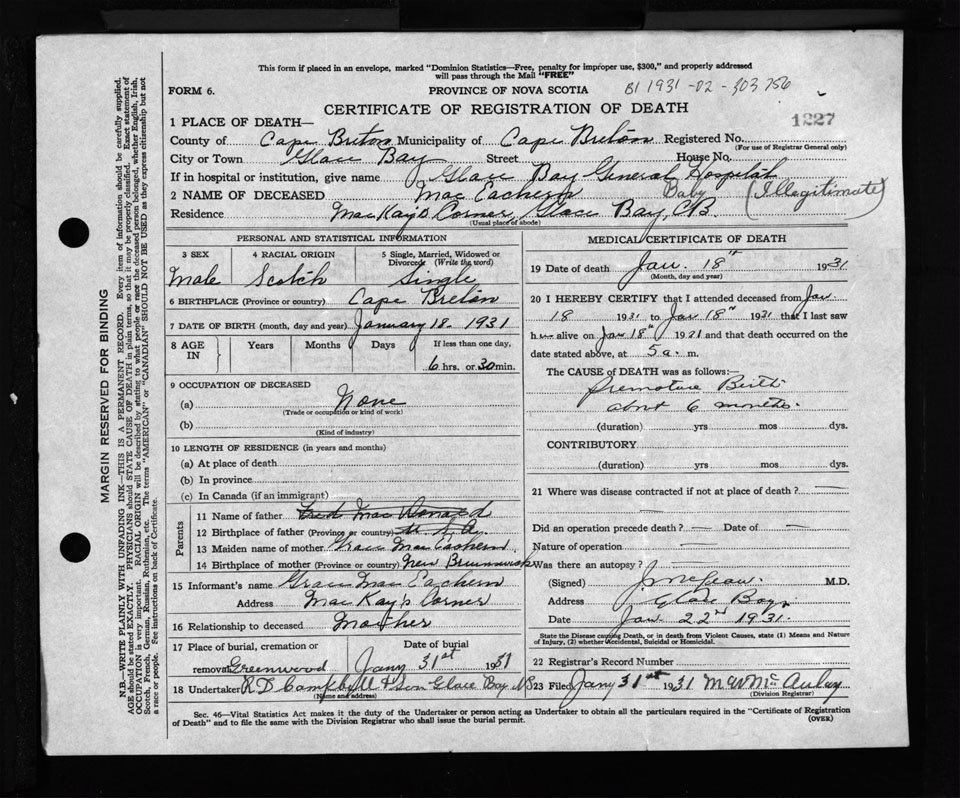 This form if placed in an envelope, marked "Dominion Statistics—Free, penalty for improper use, $300," and properly addressed
will pass through the Mail "FREE"
FORM 6. PROVINCE OF NOVA SCOTIA B1 1931-02-303756
CERTIFICATE OF REGISTRATION OF DEATH
1227
1 PLACE OF DEATH—
County of Cape Breton Municipality of Cape Breton Registered No.
(For use of Registrar General only)
City or Town Glace Bay Street House No.
If in hospital or institution, give name Glace Bay General Hospital
2 NAME OF DECEASED Mac Eachern Baby (Illegitimate)
Residence MacKay's Corner, Glace Bay, CB.
(Usual place of abode)
PERSONAL AND STATISTICAL INFORMATION
3 SEX 4 RACIAL ORIGIN 5 Single, Married, Widowed or
Divorced (Write the word)
Male Scotch Single
6 BIRTHPLACE (Province or country) Cape Breton
7 DATE OF BIRTH (month, day and year) January 18. 1931
8 AGE IN Years Months Days If less than one day,
6 hrs. or 30 min.
9 OCCUPATION OF DECEASED
(a) None
(Trade or occupation or kind of work)
(b)
(Kind of industry)
10 LENGTH OF RESIDENCE (in years and months)
(a) At place of death
(b) In province
(c) In Canada (if an immigrant)
Parents
11 Name of father Fred Mac Donald
12 Birthplace of father (Province or country) U S A
13 Maiden name of mother Grace Mac Eachern
14 Birthplace of mother (Province or country) New Brunswick
15 Informant's name Grace Mac Eachern
Address Mac Kay's Corner
16 Relationship to deceased Mother
17 Place of burial, cremation or Date of burial
removal Greenwood Jany 31st 1931
18 Undertaker R D Campbell & Son Glace Bay NS
(Name and address)
MEDICAL CERTIFICATE OF DEATH
19 Date of death Jan. 18th 1931
(Month, day and year)
20 I HEREBY CERTIFY that I attended deceased from Jan
18 1931 to Jan 18th 1931 that I last saw
h alive on Jan 18th 1931 and that death occurred on the
date stated above, at 5 a. m.
The CAUSE of DEATH was as follows:—
Premature Birth
about 6 months.
(duration) yrs mos dys.
CONTRIBUTORY
(duration) yrs mos dys.
21 Where was disease contracted if not at place of death? —
Did an operation precede death? — Date of —
Nature of operation —
Was there an autopsy? —
(Signed) M.D.
Address Glace Bay,
Date Jan 22nd 1931.
State the Disease causing Death, or in death from Violent Causes, state (1) Means and Nature
of Injury, (2) whether Accidental, Suicidal or Homicidal.
22 Registrar's Record Number
23 Filed Jany 31st 1931 McAulay
(Division Registrar)
Sec. 46—Vital Statistics Act makes it the duty of the Undertaker or person acting as Undertaker to obtain all the particulars required in the "Certificate of Registration
of Death" and to file the same with the Division Registrar who shall issue the burial permit. (OVER)
MARGIN RESERVED FOR BINDING
N.B.—WRITE PLAINLY WITH UNFADING INK—THIS IS A PERMANENT RECORD. Every item of information should be carefully supplied.
AGE should be stated EXACTLY. PHYSICIANS should STATE CAUSE OF DEATH in plain terms, so that it may be properly classified. Exact statement of
OCCUPATION is very important. RACIAL ORIGIN will be described by stating to what people or race the deceased person belonged, whether English, Irish,
Scotch, French, German, Russian, Ruthenian, etc. The terms "AMERICAN" or "CANADIAN" SHOULD NOT BE USED as they express citizenship but not
a race or people. See instructions on back of Certificate.